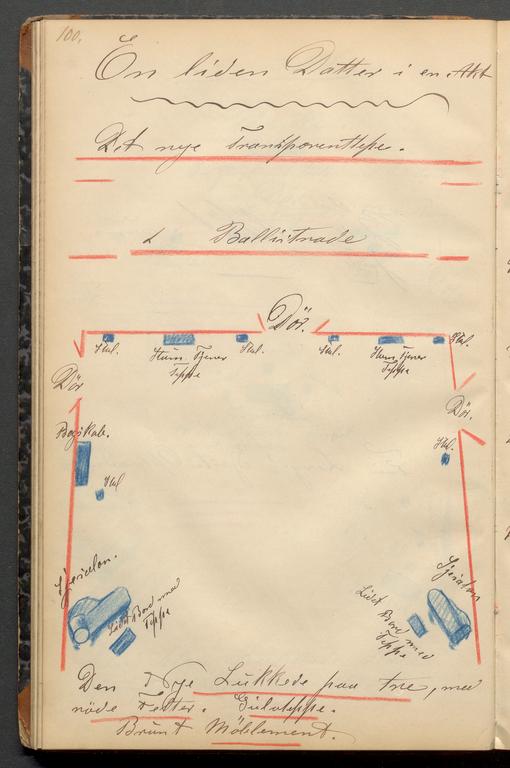 100.
En liden Datter i en Akt
Det nye Transparenttepe.
1 Ballustrade
Dör.
Stol.
Stum Tjener
Teppe
Stol.
Stol.
Stum Tjener
Teppe
Stol.
Dör
Dör.
Bogskab.
Stol
Stol.
Lidet Bord med
Teppe
Lidet
Bord med
Teppe
Den Nye Lukkede paa tre, med
röde Felter. Gulvteppe.
Brunt Möblement.